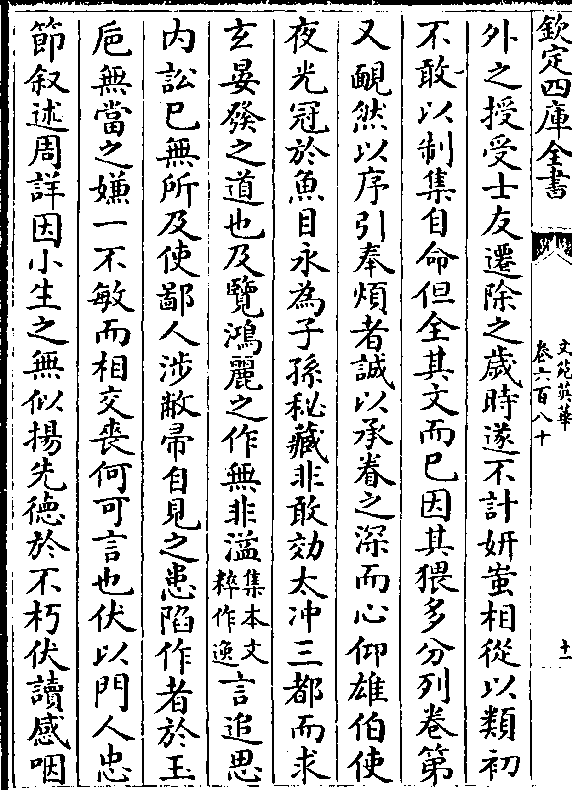 欽定四庫全書
文苑英華
卷六百八十
十一
外之授受士友遷除之歲時遂不計妍蚩相從以類初
不敢以制集自命但全其文而已因其猥多分列卷第
又靦然以序引奉煩者誠以承眷之深而心仰雄伯使
夜光冠於魚目永為子孫秘藏非敢効太冲三都而求
玄晏發之道也及覽鴻麗之作無非溢集本文粹作逸言追思
内訟已無所及使鄙人涉敝帚自見之患陷作者於玉
巵無當之嫌一不敏而相交喪何可言也伏以門人忠
節叙述周詳因小生之無似揚先德於不朽伏讀感咽